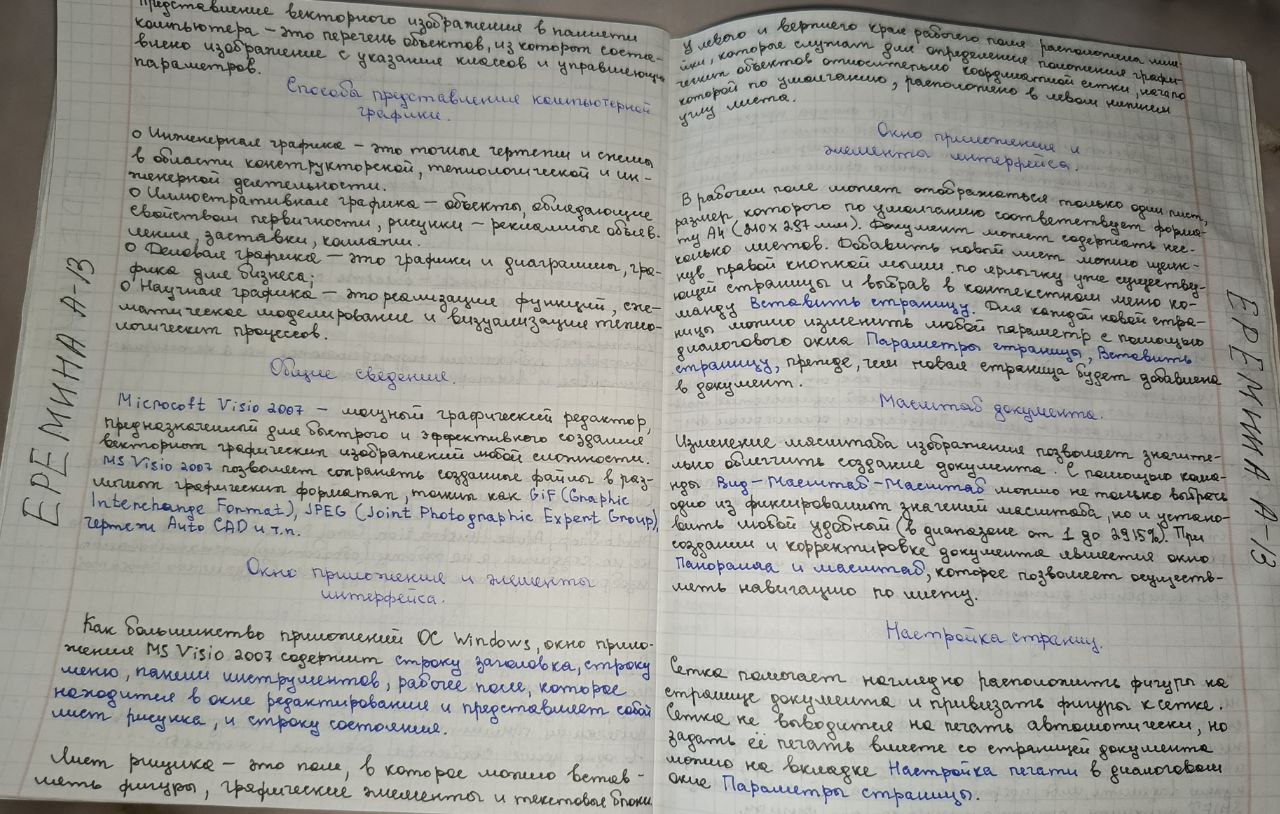 Представление векторного изображения в памяти
компьютера – это перечень объектов, из которых соста-
влено изображение с указание классов и управляющих
параметров.
Способы представление компьютерной
графики.
о Инженерная графика – это точные чертежи и схемы
в области конструкторской, технологической и ин-
женерной деятельности.
о Иллюстративная графика – объекты, обладающие
свойством первичности, рисунки – рекламные объяв.
ление, заставки, коллажи.
о Деловая графика – это графики и диаграммы, гра-
фика для бизнеса;
о Научная графика – это реализация функций, схе-
матическое моделирование и визуализация техно-
логических процессов.
Общие сведение.
Microcoft Visio 2007 – мощный графический редактор,
предназначенный для быстрого и эффективного создание
векторных графических изображений любой сложности.
MS Visio 2007 позволяет сохранять созданные файлы в раз-
личных графических форматах, таких как GiF (Graphic
Interchange Format), JPEG (Joint Photographic Expert Group),
чертежи Auto CAD и т.п.
Окно приложение и элементы
интерфейса.
Как большинство приложений ОС Windows, окно прило-
жение MS Visio 2007 содержит строку заголовка, строку
меню, панели инструментов, рабочее поле, которое
находится в окне редактирование и представляет собой
лист рисунка, и строку состояние.
Лист рисунка – это поле, в которое можно встав-
лять фигуры, графические элементы и текстовые блоки
ЕРЕМИНА А-13
У левого и верхнего края рабочего поля расположены лине-
йки, которые служат для определение положение графи-
ческих объектов относительно координатной сетки, начало
которой по умолчанию, расположено в левом нижнем
углу листа.
Окно приложение и
элементы интерфейса.
В рабочем поле может отображаться только один лист,
размер которого по умолчанию соответствует форма-
ту А4 (210х297 мм). Документ может содержать нес-
колько листов. Добавить новый лист можно щелк-
нув правой кнопкой мыши по ярлычку уже существу-
ющей страницы и выбрав в контекстном меню ко-
манду Вставить страницу. Для каждой новой стра-
ницы можно изменить любой параметр с помощью
диалогового окна Параметры страницы, Вставить
страницу, прежде, чем новая страница будет добавлена
в документ.
Масштаб документа.
Изменение масштаба изображения позволяет значите-
льно облегчить создание документа. С помощью кома-
нды Вид-Масштаб-Масштаб можно не только выбрать
одно из фиксированных значений масштаба, но и устано-
вить любой удобный (в диапазоне от 1 до 2915%). При
создании и корректировке документа является окно
Панорама и масштаб, которое позволяет осуществ-
лять навигацию по листу.
Настройка страниц.
Сетка помогает наглядно расположить фигуры на
странице документа и привязать фигуры к сетке.
Сетка не выводится на печать автоматически, но
задать её печать вместе со страницей документа
можно на вкладке Настройка печати в диалоговом
окне Параметры страницы.
ЕРЕМИНА А-13